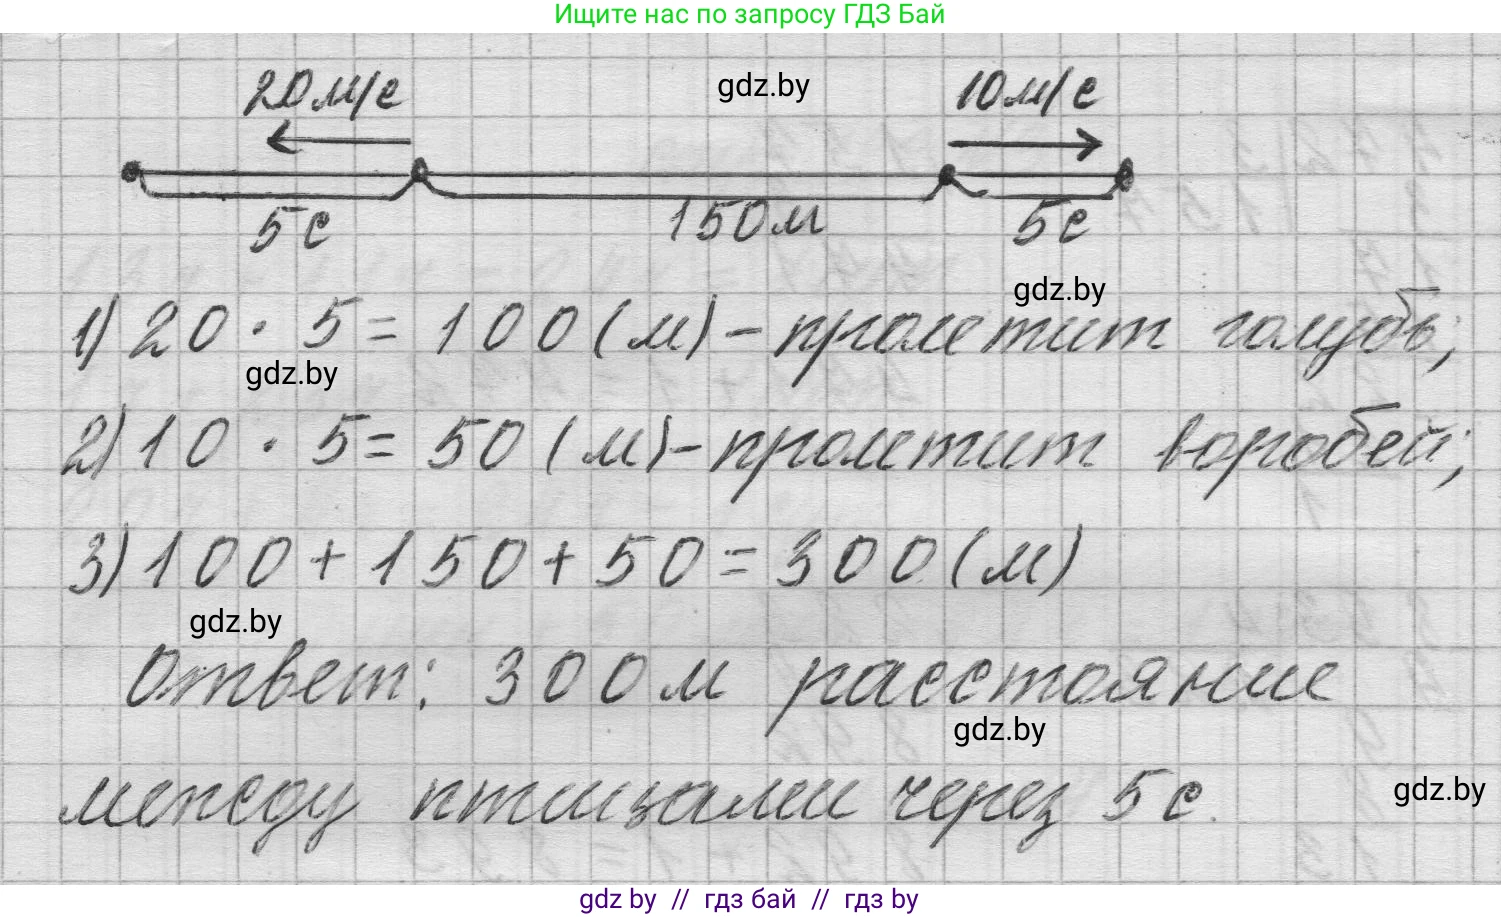 Ищите нас по запросу ГДЗ Бай
20м/с gdz.by 10м/с
5с 150м 5с
gdz.by
1) 20 · 5 = 100 (м) - пролетит голубь;
gdz.by
2) 10 · 5 = 50 (м) - пролетит воробей;
3) 100 + 150 + 50 = 300 (м)
gdz.by
Ответ: 300 м расстояние
gdz.by
между птицами через 5 с.
gdz.by
gdz by // гдз бай // гдз by